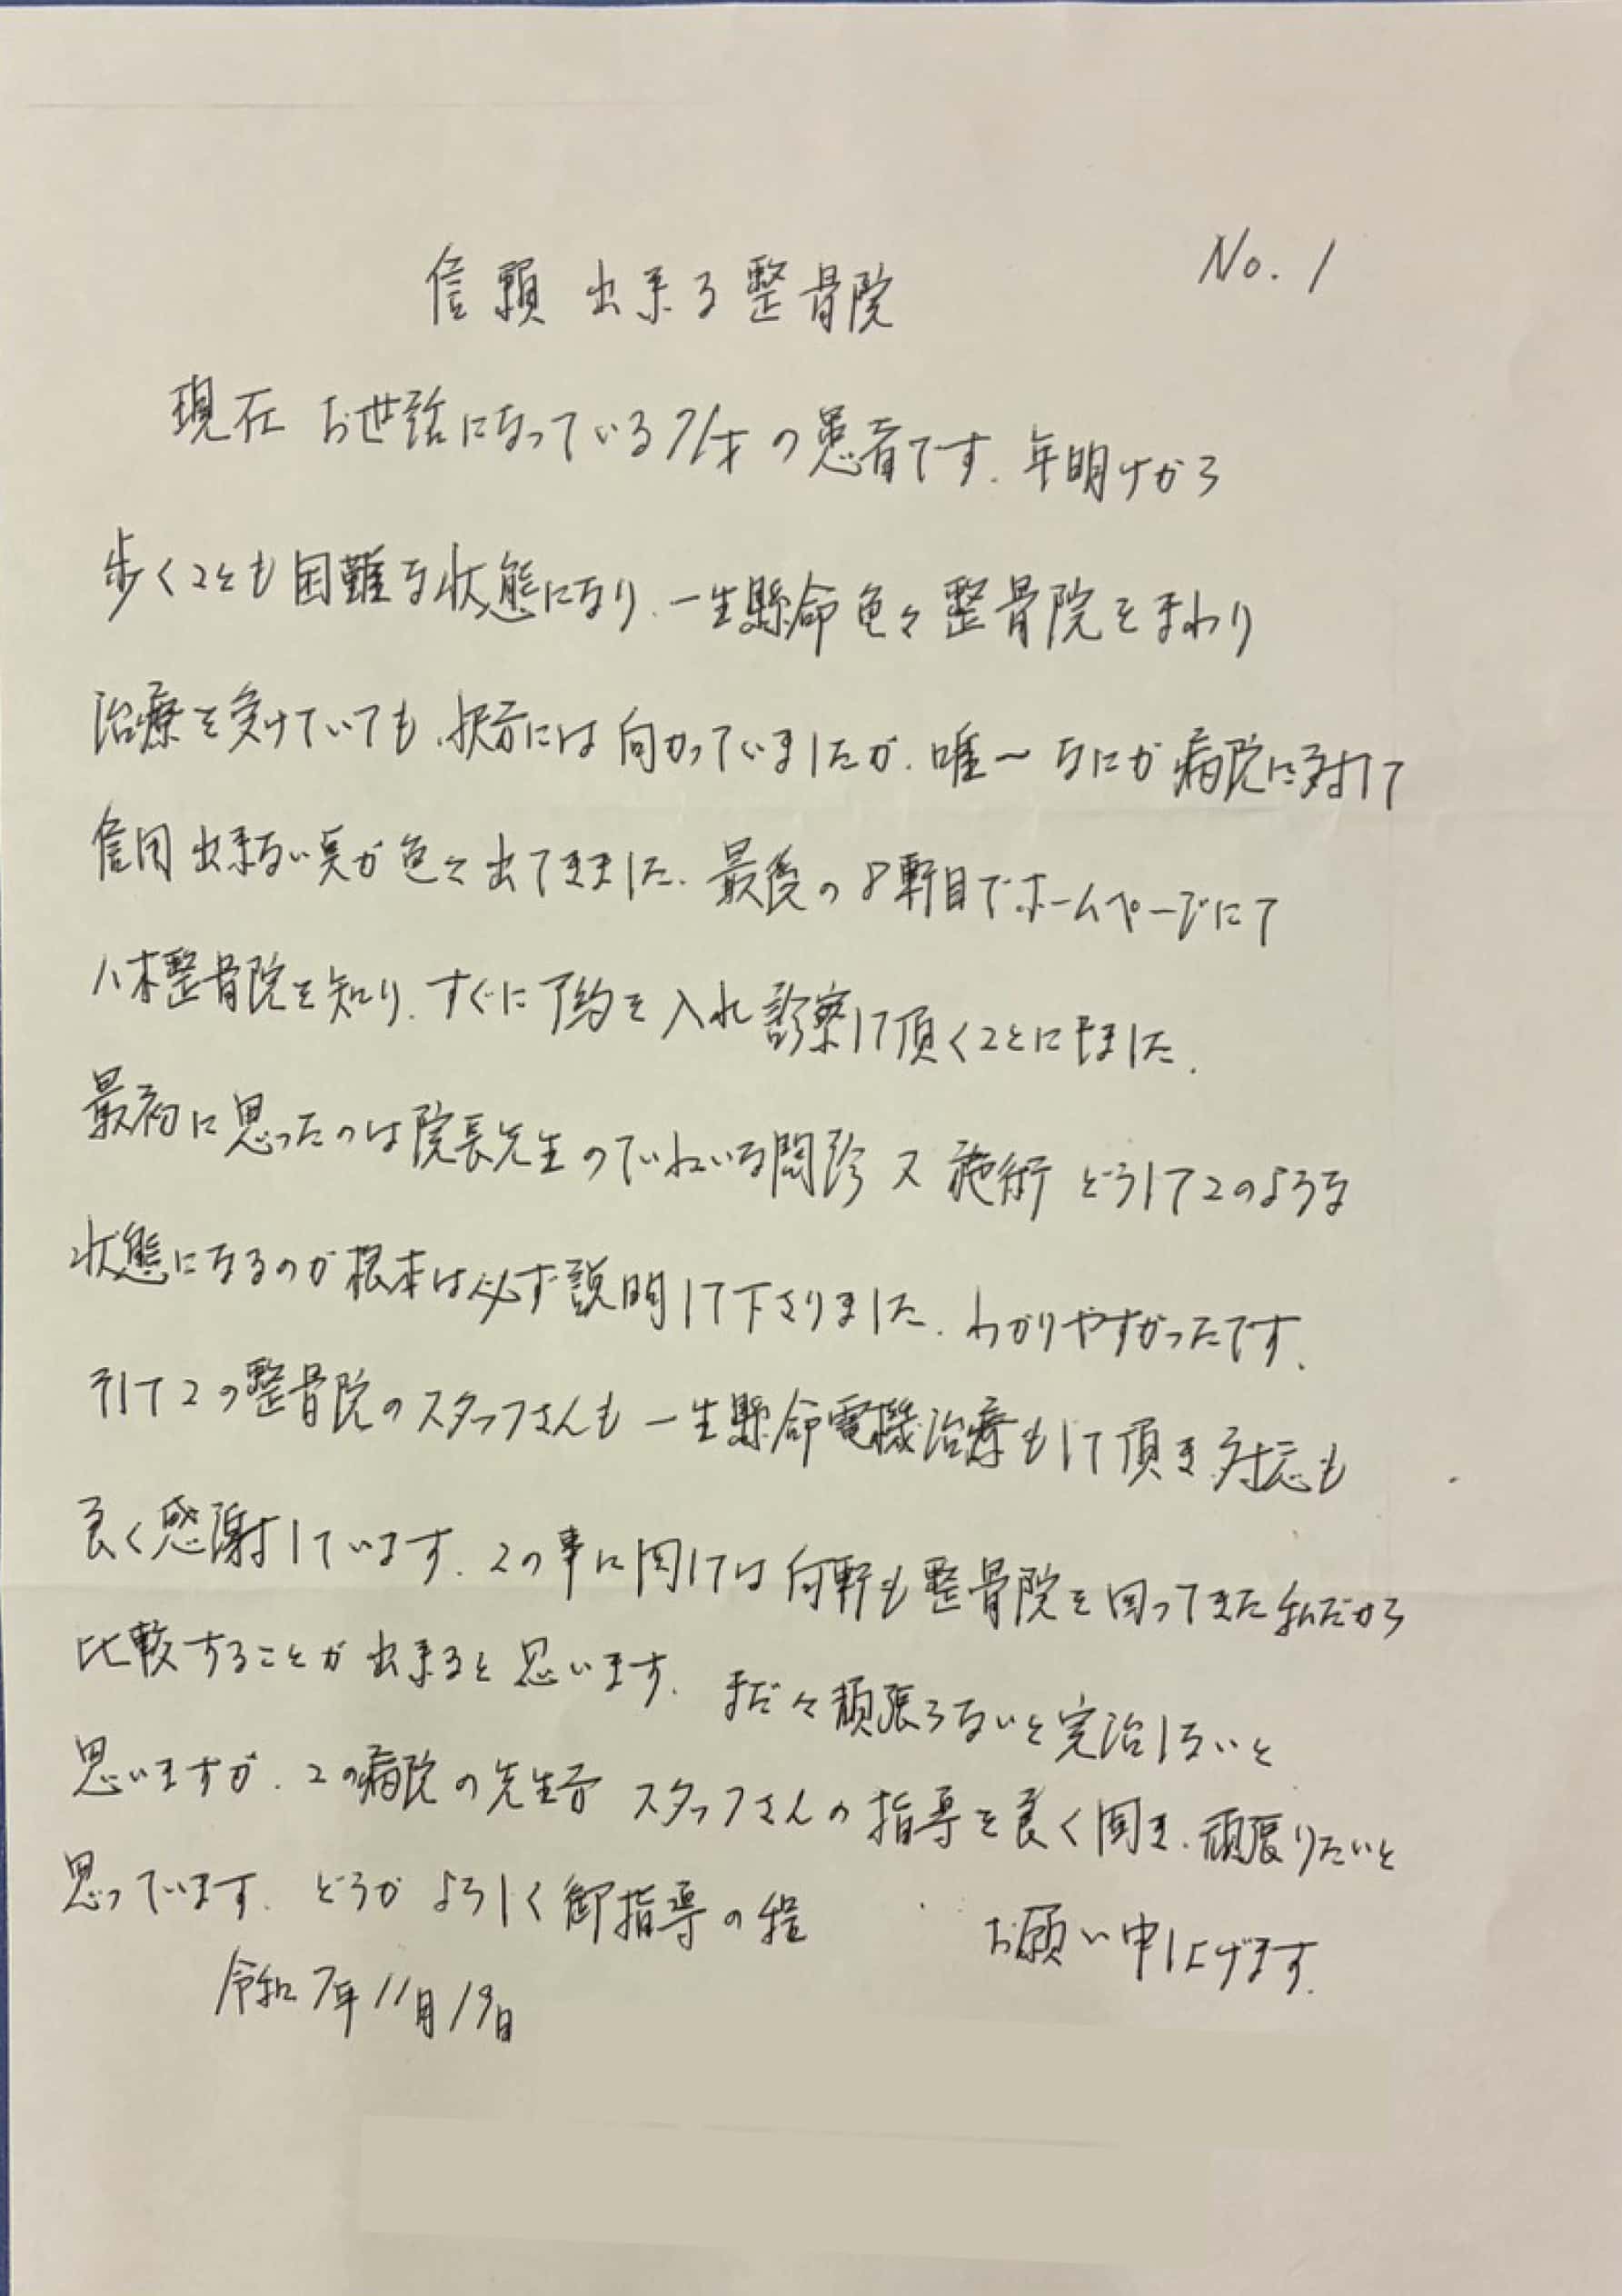 No.1
信頼出来る整骨院
現在 お世話になっている71才の患者です、年明けから
歩くことも困難な状態になり、一生懸命色々整骨院をまわり
治療を受けていても、快方には向かっていましたが、唯一なにか病院に対して
信用出来ない点が色々出てきました、最後の8軒目でホームページにて
八木整骨院を知り、すぐに予約を入れ診察して頂くことにしました、
最初に思ったのは院長先生のていねいな問診 又 施術 どうしてこのような
状態になるのか根本は必ず説明して下さりました、わかりやすかったです、
そしてこの整骨院のスタッフさんも一生懸命電機治療もして頂き、対応も
良く感謝しています、この事に関しては何軒も整骨院を回ってきた私だから
比較することが出来ると思います、まだ々頑張らないと完治しないと
思いますが、この病院の先生 スタッフさんの指導を良く聞き、頑張りたいと
思っています、どうかよろしく御指導の程 お願い申し上げます、
令和7年11月19日